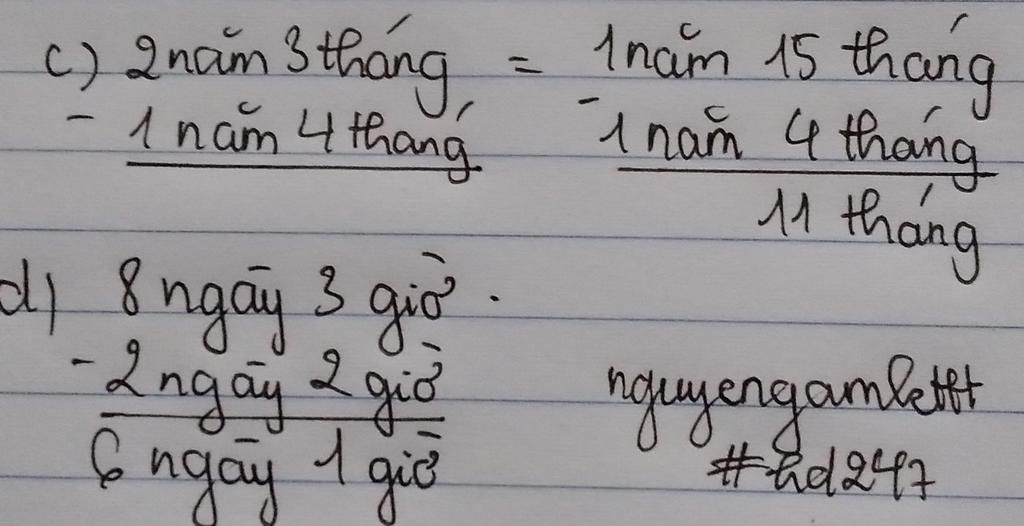 c) 2 năm 3 tháng = 1 năm 15 tháng
- 1 năm 4 tháng - 1 năm 4 tháng
11 tháng
d) 8 ngày 3 giờ.
- 2 ngày 2 giờ
6 ngày 1 giờ
nguyengamlettt
#hd247